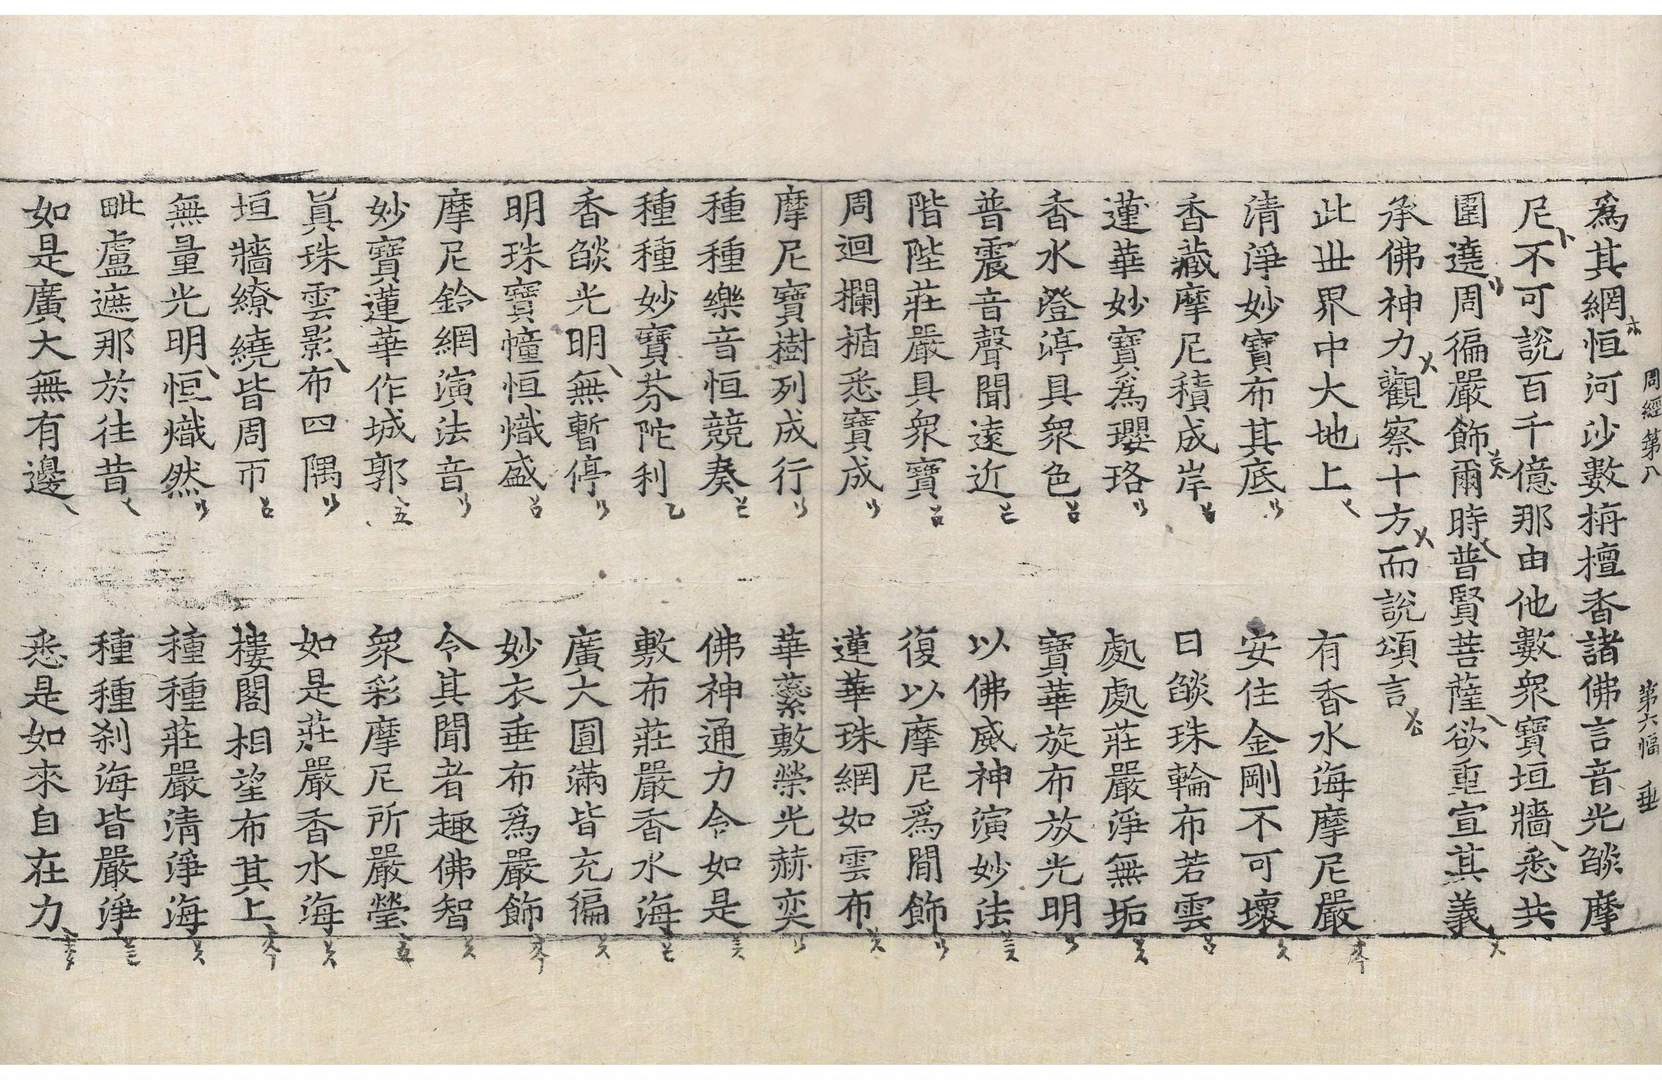 周經第八 第六幅 垂
爲其網恒河沙數栴檀香諸佛言音光燄摩
尼不可說百千億那由他數衆寶垣牆悉共
圍遶周徧嚴飾爾時普賢菩薩欲重宣其義
承佛神力觀察十方而說頌言
此世界中大地上 有香水海摩尼嚴
清淨妙寶布其底 安住金剛不可壞
香藏摩尼積成岸 日燄珠輪布若雲
蓮華妙寶爲瓔珞 處處莊嚴淨無垢
香水澄渟具衆色 寶華旋布放光明
普震音聲聞遠近 以佛威神演妙法
階陛莊嚴具衆寶 復以摩尼爲間飾
周迴欄楯悉寶成 蓮華珠網如雲布
摩尼寶樹列成行 華蘂敷榮光赫奕
種種樂音恒競奏 佛神通力令如是
種種妙寶芬陀利 敷布莊嚴香水海
香燄光明無暫停 廣大圓滿皆充徧
明珠寶幢恒熾盛 妙衣垂布爲嚴飾
摩尼鈴網演法音 令其聞者趣佛智
妙寶蓮華作城郭 衆彩摩尼所嚴瑩
眞珠雲影布四隅 如是莊嚴香水海
垣牆繚繞皆周帀 樓閣相望布其上
無量光明恒熾然 種種莊嚴清淨海
毗盧遮那於往昔 種種刹海皆嚴淨
如是廣大無有邊 悉是如來自在力